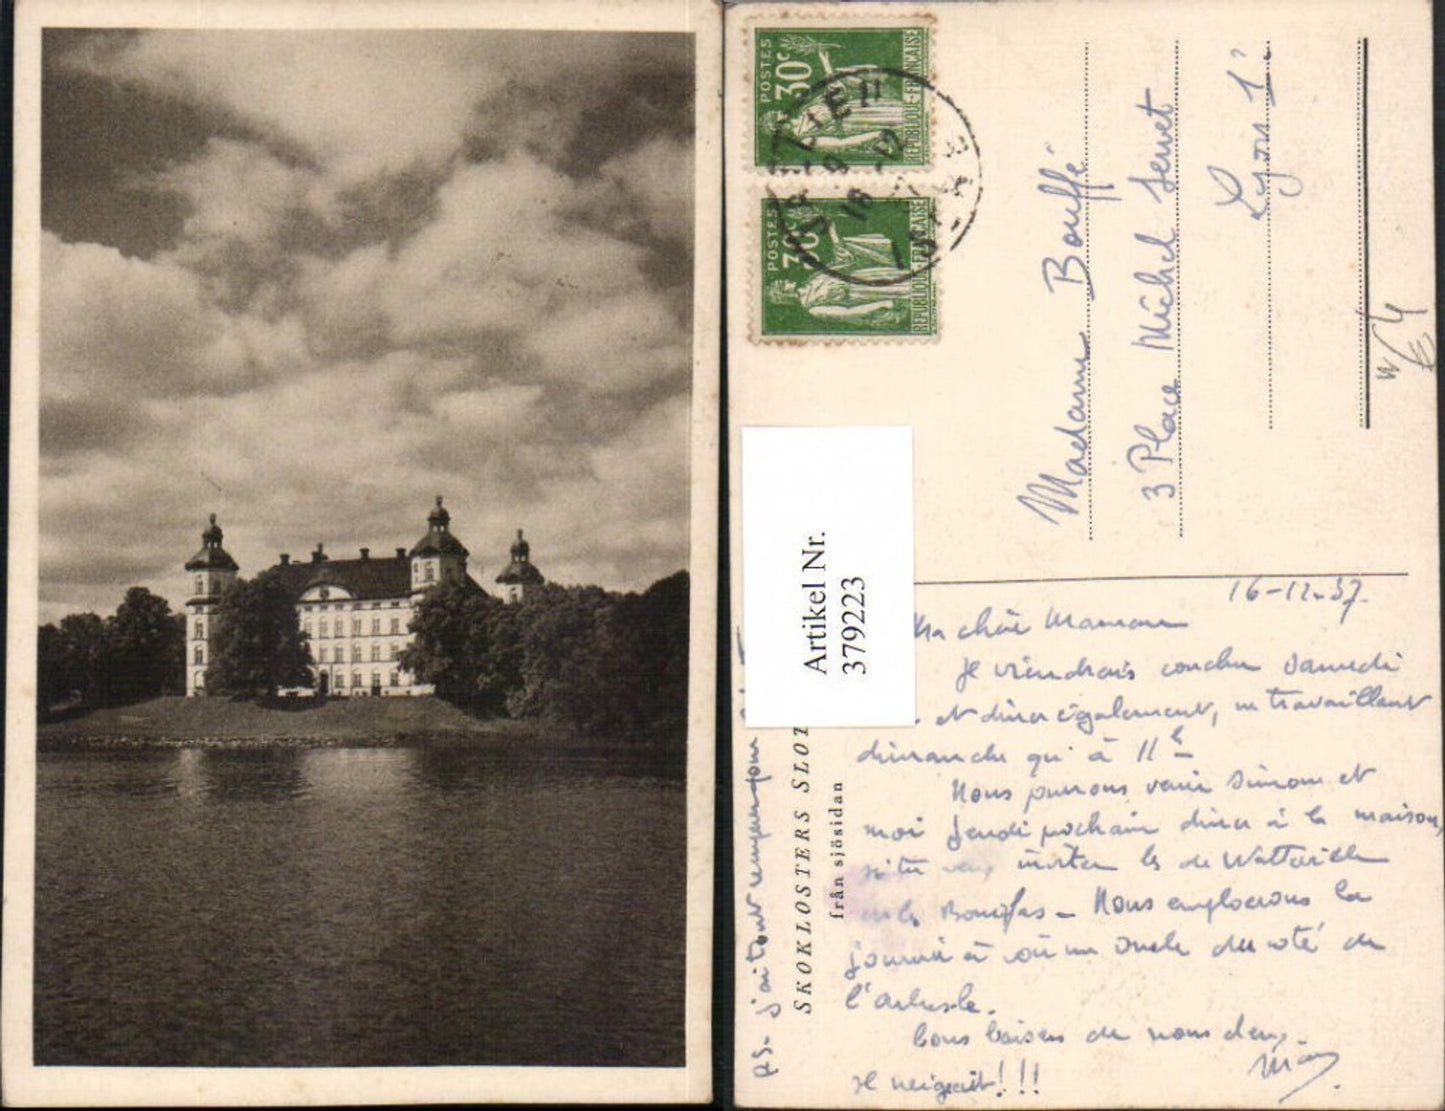 POSTES
30c
REPUBLIQUE-FRANÇAISE
POSTES
30c
REPUBLIQUE-FRANÇAISE
Madame Bouffé
3 Place Michel Servet
Lyon 1°
Artikel Nr.
379223
SKOKLOSTERS SLOT
från sjösidan
16-12-37.
Ma chère Maman
Je viendrais coucher Samedi
et diner également, en travaillant
dimanche qu'à 11h
Nous pourrons venir Simone et
moi Jeudi prochain diner à la maison,
si tu veux inviter les de Watteville
Nous employerons la
journée à
l'arbresle.
Bons baisers de nous deux.
Il neigeait!!!
PS- j'ai tout